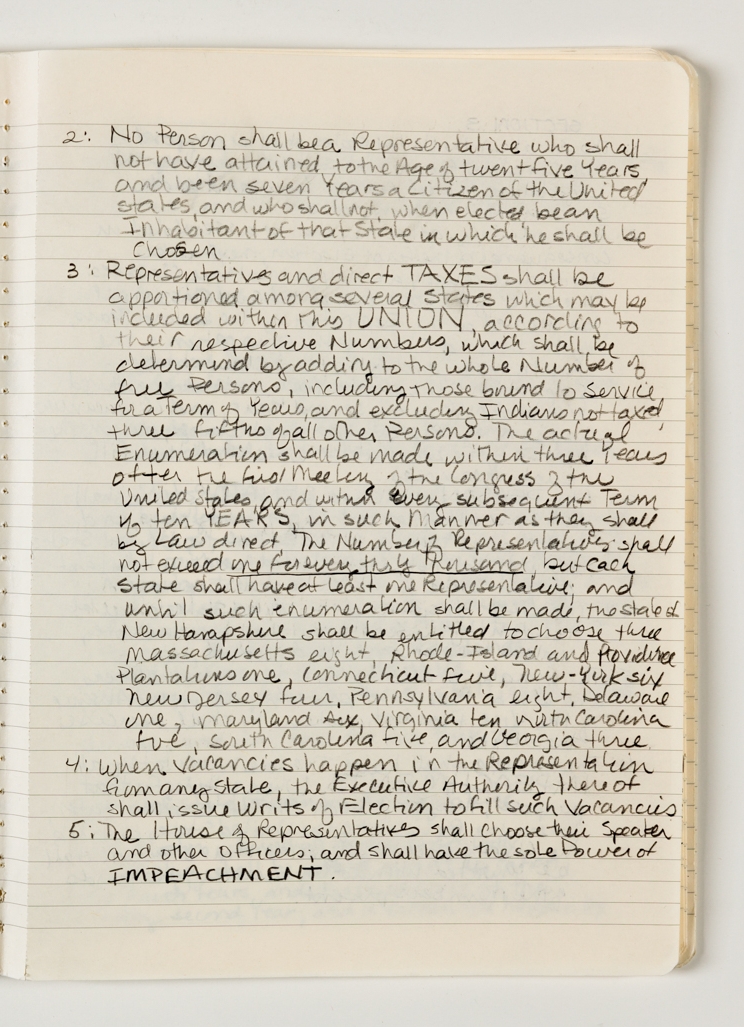 2: No Person shall be a Representative who shall
not have attained to the Age of twenty five Years,
and been seven Years a Citizen of the United
states, and who shall not, when elected be an
Inhabitant of that State in which he shall be
Chosen
3: Representatives and direct TAXES shall be
apportioned among several States which may be
included within this UNION, according to
their respective Numbers, which shall be
determind by adding to the whole Number of
free Persons, including those bound to Service
for a Term of Years, and excluding Indians not taxed,
three fifths of all other Persons. The actual
Enumeration shall be made within three Years
after the first Meeting of the Congress of the
United States, and within every subsequent Term
of ten YEARS, in such Manner as they shall
by Law direct. The Number of Representatives shall
not exceed one for every thirty Thousand, but each
State shall have at least one Representative; and
until such enumeration shall be made, the state of
New Hampshire shall be entitled to choose three
Massachusetts eight, Rhode-Island and Providence
Plantations one, Connecticut five, New-York six
New Jersey four, Pennsylvania eight, Delaware
one, Maryland six, Virginia ten, north Carolina
five, South Carolina five, and Georgia three
4: When Vacancies happen in the Representation
from any State, the Executive Authority thereof
shall issue Writs of Election to fill such Vacancies
5: The House of Representatives shall choose their Speaker
and other Officers; and shall have the sole Power of
IMPEACHMENT.